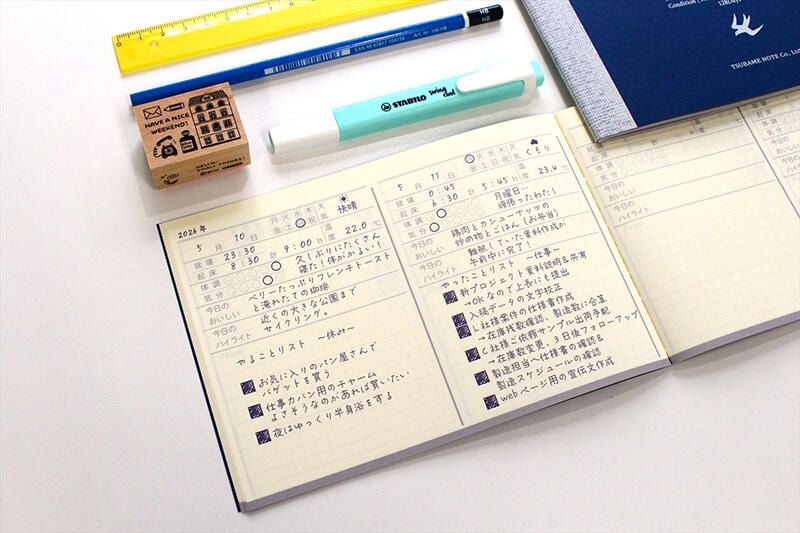 Condition
TSUBAME NOTE Co., Ltd.
HB
EAN 40 07817 104156 Art. Nr. 100 HB
STABILO swing cool
HAVE A NICE
WEEKEND!
2026年
5月10日 月火水木金土日祝 天気 快晴
就寝 23:30 計 9:00h 温度 22.0℃
起床 8:30
体調 久しぶりにたくさん
気分 寝た!体がかるい!
今日の
おいしい
ベリーたっぷりフレンチトースト
と淹れたての珈琲
今日の
ハイライト
近くの大きな公園まで
サイクリング。
やることリスト 〜休み〜
お気に入りのパン屋さんで
バゲットを買う
仕事カバン用のチャーム
よさそうなのがあれば買いたい
夜はゆっくり半身浴をする
5月11日 月火水木金土日祝 天気 くもり
就寝 0:45 計 5:45h 温度 23.4℃
起床 6:30
体調 月曜日…
気分 頑張ったわたし!
今日の
おいしい
鶏肉とカシューナッツの
炒め物とごはん(お弁当)
今日の
ハイライト
難航していた資料作成が
午前中に完了!
やったことリスト 〜仕事〜
新プロジェクト資料説明&共有
→OKなので上長にも提出
入稿データの文字校正
L社様案件の仕様書作成
→在庫残数確認、製造数に合算
C社様ご依頼サンプル出荷手配
→在庫数変更、3日後フォローアップ
製造担当へ仕様書の確認&
製造スケジュールの確認
webページ用の宣伝文作成
月
日
就寝
起床
計
温度
体調
気分
今日の
おいしい
今日の
ハイライト